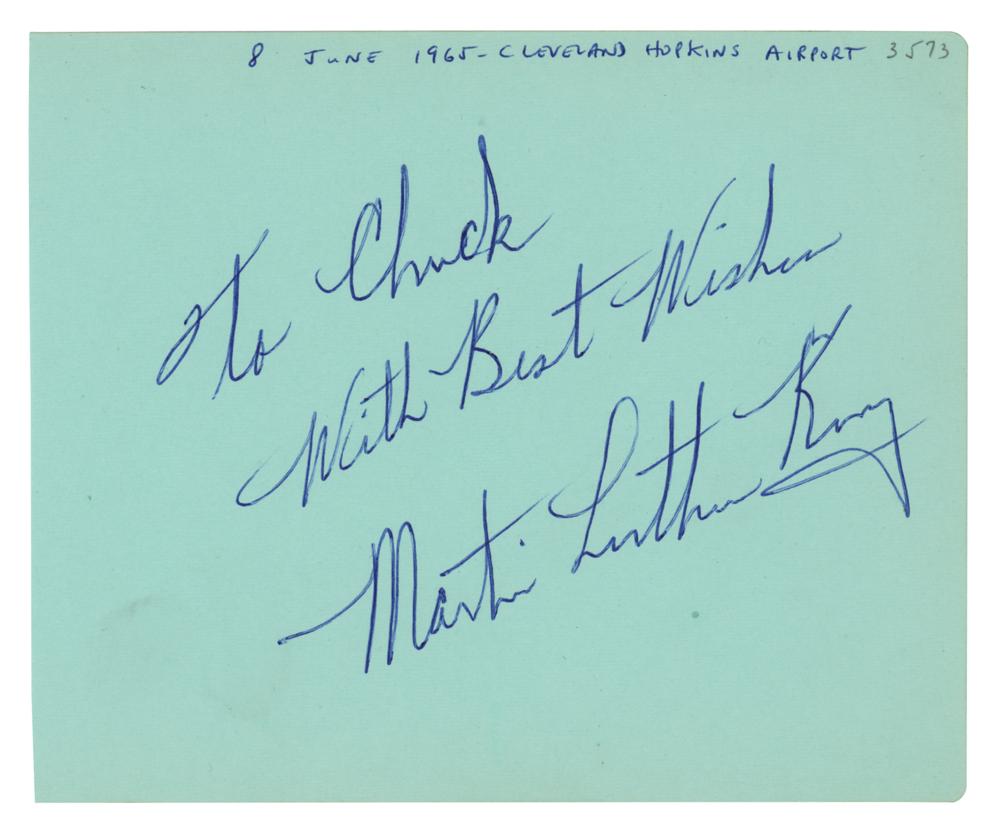 8 JUNE 1965 - CLEVELAND HOPKINS AIRPORT 3573
To Chuck
With Best Wishes
Martin Luther King